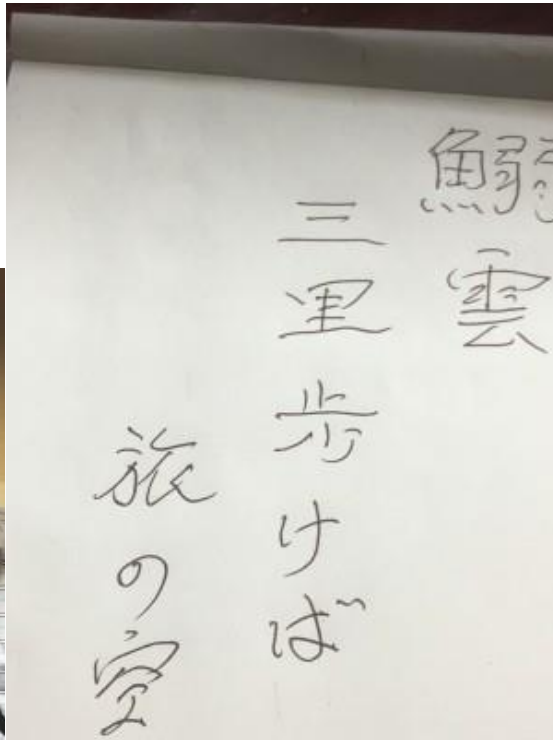 鰯雲
三里歩けば
旅の空